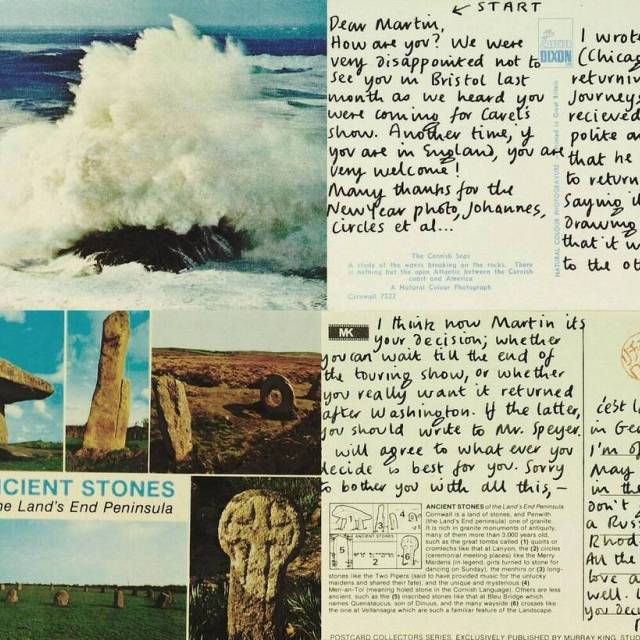 ← START
Dear Martin,
How are you? We were
very disappointed not to
see you in Bristol last
month as we heard you
were coming for Carel's
show. Another time, if
you are in England, you are
very welcome!
Many thanks for the
New Year photo, Johannes,
Circles et al...
DIXON
NATURAL COLOUR PHOTOGRAVURE
The Cornish Seas
A study of the waves breaking on the rocks. There
is nothing but the open Atlantic between the Cornish
coast and America
A Natural Colour Photograph
Cornwall 7322
I wrote
(Chicag
returnin
Journeys
recieved
polite a
that he
to return
Saying i
Drawing
that it w
to the ot
NCIENT STONES
he Land's End Peninsula
MK
I think now Martin its
your decision; whether
you can wait till the end of
the touring show, or whether
you really want it returned
after Washington. If the latter,
you should write to Mr. Speyer.
will agree to what ever you
decide is best for you. Sorry
to bother you with all this,—
ANCIENT STONES
1
2
3
4
5
6
ANCIENT STONES of the Land's End Peninsula
Cornwall is a land of stones, and Penwith
(the Land's End peninsula) one of granite.
It is rich in granite monuments of antiquity,
many of them more than 3,000 years old,
such as the great tombs called (1) quoits or
cromlechs like that at Lanyon, the (2) circles
(ceremonial meeting places) like the Merry
Maidens (in legend, girls turned to stone for
dancing on Sunday), the menhirs or (3) long-
stones like the Two Pipers (said to have provided music for the unlucky
maidens and shared their fate), and the unique and mysterious (4)
Men-an-Tol (meaning holed stone in the Cornish Language). Others are less
ancient, such as the (5) inscribed stones like that at Bleu Bridge which
names Quenataucus, son of Dinuus, and the many wayside (6) crosses like
the one at Vellansagia which are such a familiar feature of the Landscape.
POSTCARD COLLECTORS SERIES. EXCLUSIVELY PUBLISHED BY MURRAY KING, S
c'est l
in Ge
I'm o
May
in the
don't
a Rus
Rhod
All the
love a
well.
you de